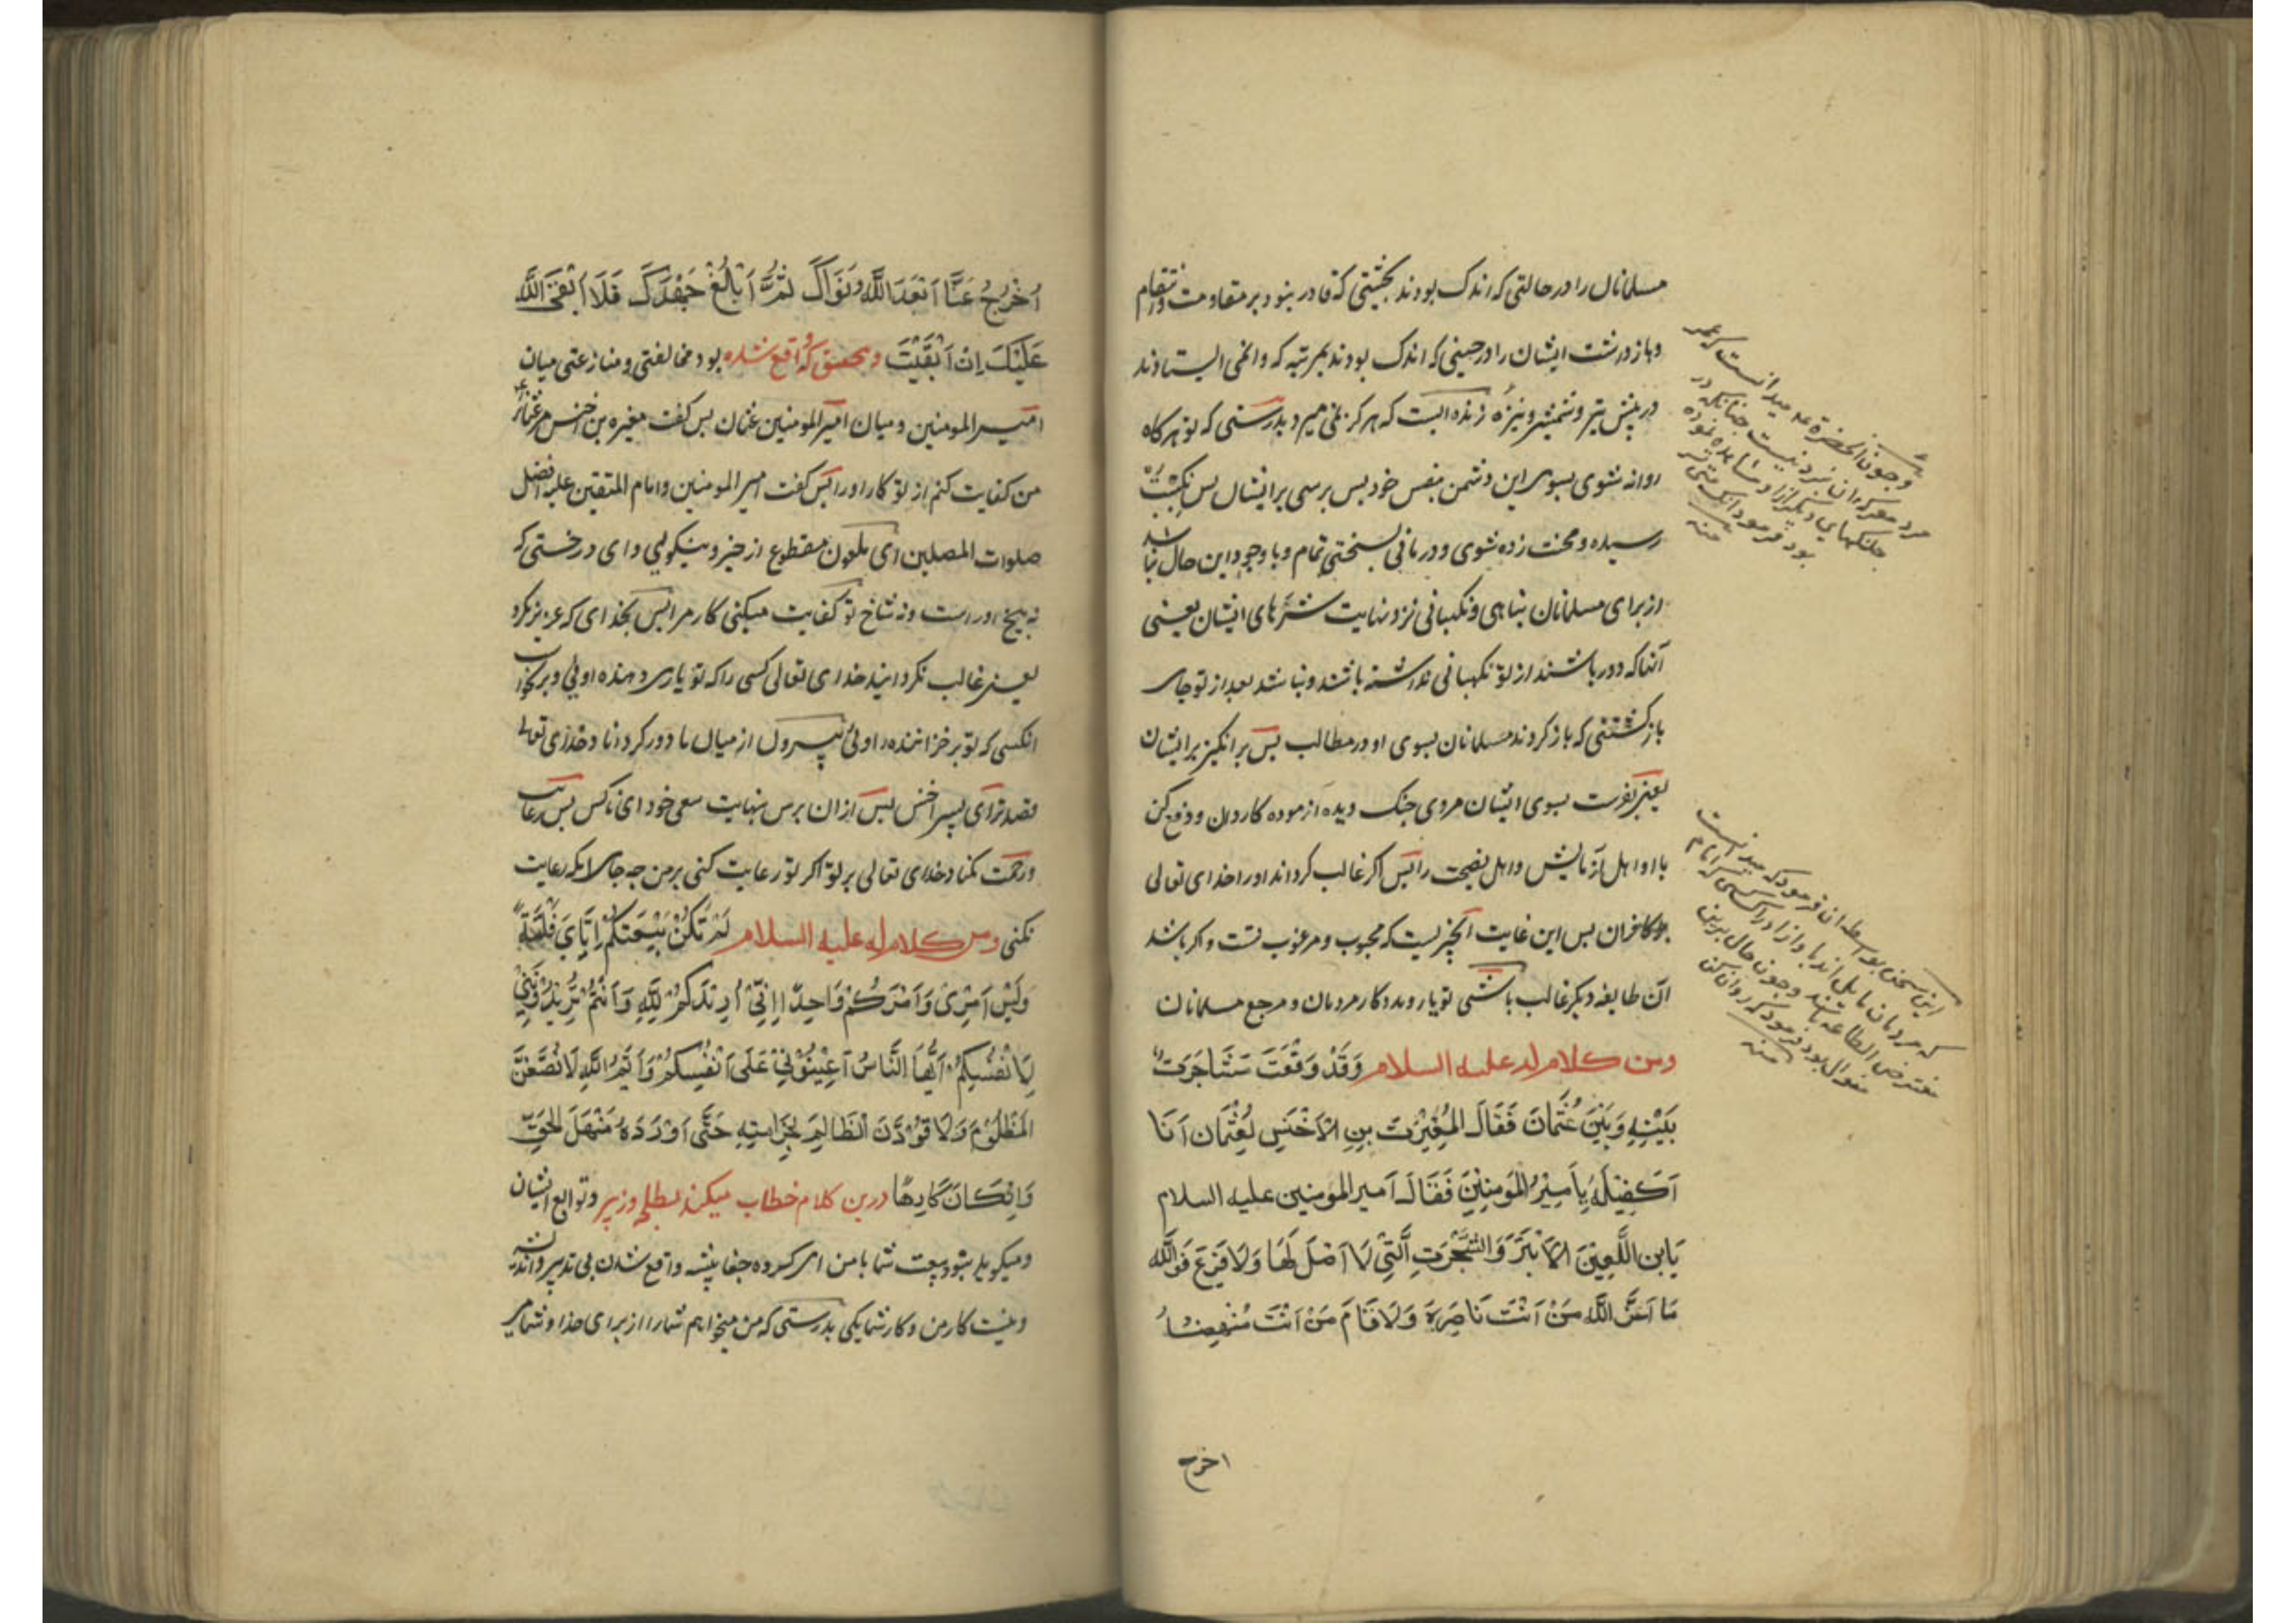 مسلمانان را در حالتی که اندک بودند بحیثیتی که قادر نبودند بر مقاومت و انتقام
و بازداشت ایشان را در حینی که اندک بودند بمرتبه که وانمی ایستادند
در پیش تیر و شمشیر و نیزه زنده است که هرگز نمی میرد بدرستی که تو هرگاه
روانه شوی بسوی این دشمن بنفس خود پس برسی برایشان پس نکبت
رسیده و محنت زده شوی و درمانی بسختی تمام و با وجود این حال نباشد
از برای مسلمانان پناهی و نگهبانی نزد نهایت شهرهای ایشان یعنی
آنها که دور باشند از تو نگهبانی نداشته باشند و نباشد بعد از تو جای
بازگشتنی که باز گردند مسلمانان بسوی او در مطالب پس برانگیز برایشان
یعنی بفرست بسوی ایشان مردی جنگ دیده ازموده کاردان و دفع کن
با او اهل آزمایش و اهل نصیحت را پس اگر غالب گرداند او را خدای تعالی
بر کافران پس این غایت آنچیزیست که محبوب و مرغوب تست و اگر باشد
آن طایفه دیگر غالب باشی تو یار و مددکار مردمان و مرجع مسلمانان
ومن کلام له علیه السلام وَقَدْ وَقَعَتْ مَشَاجَرَتٌ
بَیْنَهُ وَبَیْنَ عُثْمَانَ فَقَالَ المُغِیْرَتُ بنِ الاَخْنَسِ لِعُثْمَان اَنَا
اَکْفِیْکَهُ یَا اَمِیْرُ المُؤْمِنِیْنَ فَقَالَ اَمیر المؤمنین علیه السلام
یَا ابن اللَّعِیْنَ الاَبْتَرَ وَالشَّجَرَتِ الَّتِیْ لَا اَصْلَ لَهَا وَلَا فَرْعَ فَوَاللّٰه
مَا اَعَزَّ اللّٰه مَنْ اَنْتَ نَاصِرَهُ وَلَا قَامَ مَنْ اَنْتَ مُنْهِضُهُ
اخرج
و چون آنحضرة عم میدانست که عمر
مرد معرکه ان نبرد نیست چنانکه در
جنگهای دیگر از او مشاهده نموده
بود فرمود
منه
این سخن بواسطه ان فرمود که میدانست
که مردمان مایل اند با و از او
مفترض الطاعه باشند و چون حال برین
منوال بود فرمود که روان کن
منه
اُخْرُجْ عَنَّا اَبْعَدَ اللّٰه نَوَاکَ ثُمَّ اَبْلِغْ جَهْدَکَ فَلَا اَبْقَی اللّٰه
عَلَیْکَ اِنْ اَبْقَیْتَ و بتحقیق که واقع شده بود مخالفتی و منازعتی میان
امیر المومنین و میان امیر المومنین عثمان پس گفت مغیره بن اخنس مر عثمان را
من کفایت کنم از تو کار او را پس گفت امیر المومنین و امام المتقین علیه افضل
صلوات المصلین ای ملعون مقطوع از خیر و نیکویی و ای درختی که
نه بیخ او راست و نه شاخ تو کفایت میکنی کار مرا پس بخدای که عزیز نکرد
یعنی غالب نگردانید خدای تعالی کسی را که تو یاری دهنده اوئی و بر نخواست
انکسی که تو بر خزاننده اوئی بیرون از میان ما دور گرداناد خدای تعالی
قصد ترا ای پسر اخنس پس ازان برس بنهایت سعی خود ای ناکس پس رعایت
و رحمت نکناد خدای تعالی بر تو اگر تو رعایت کنی بر من چه جای انکه رعایت
نکنی ومن کلام له علیه السلام لَمْ تَکُنْ بَیْعَتُکُمْ اِیَّایَ فَلْتَةً
وَلَیْسَ اَمْرِیْ وَاَمْرُکُمْ وَاحِدًا اِنِّیْ اُرِیْدُکُمْ لِلّٰهِ وَاَنْتُمْ تُرِیْدُوْنَنِیْ
لِاَنْفُسِکُمْ اَیُّهَا النَّاسُ اَعِیْنُوْنِیْ عَلَی اَنْفُسِکُمْ وَاَیْمُ اللّٰهِ لَاَنْصِفَنَّ
المَظْلُوْمَ وَلَاَقُوْدَنَّ الظَّالِمَ بِخِزَامَتِهِ حَتّٰی اَوْرَدَهُ مَنْهَلَ الحَقِّ
وَاِنْ کَانَ کَارِهًا درین کلام خطاب میکند بطلحه و زبیر و توابع ایشان
و میگوید نبود بیعت شما با من ای گروه جفا پیشه واقع شدن بی تدبیر و اندیشه
و نیست کار من و کار شما یکی بدرستی که من میخواهم شما را از برای خدا و شما مر